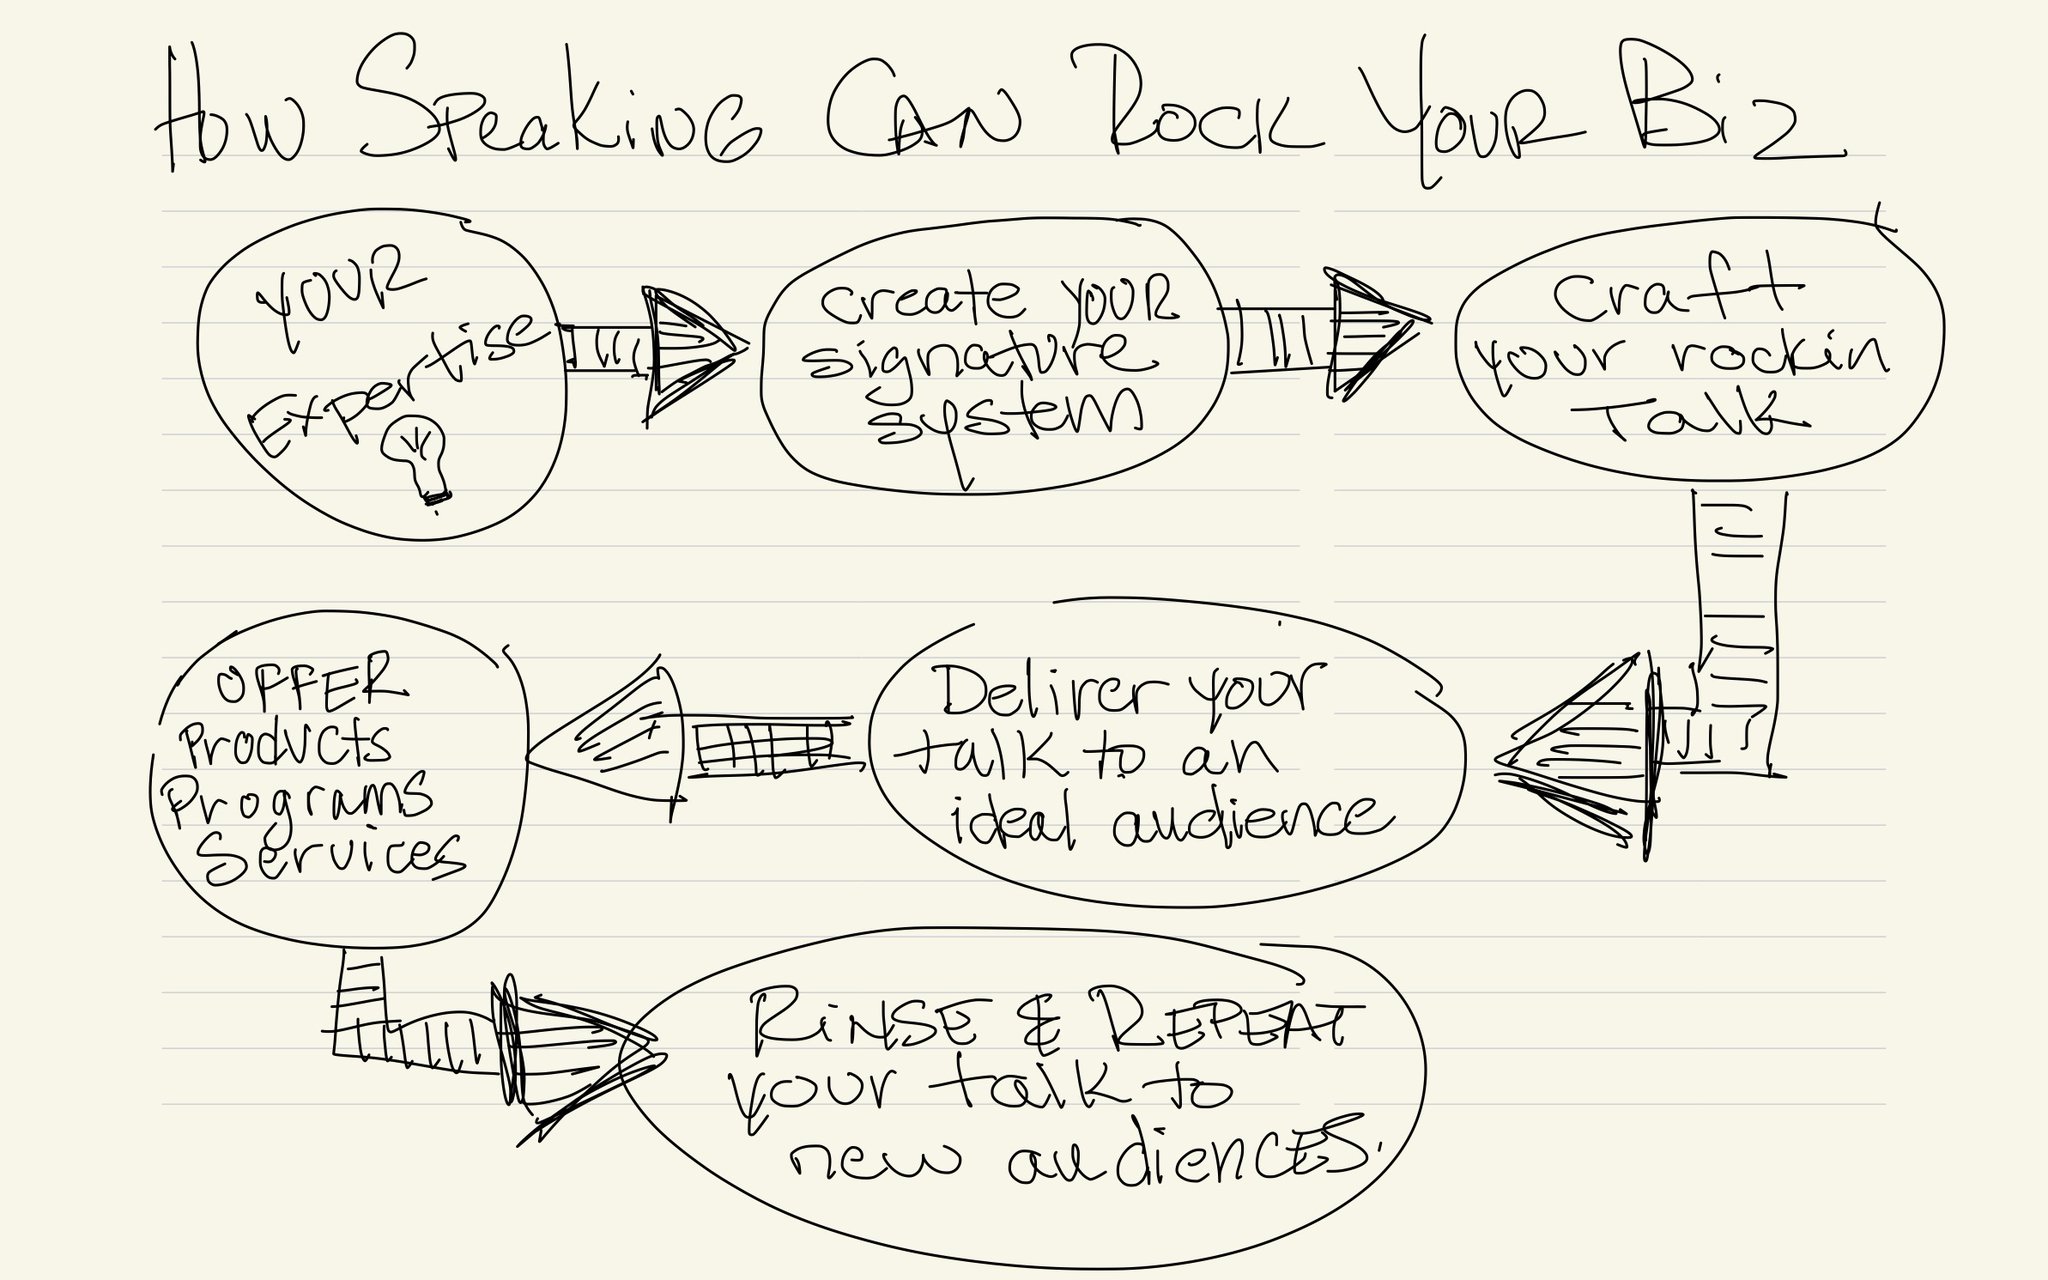 How Speaking Can Rock Your Biz
YOUR
Expertise
create YOUR
signature
system
craft
your rockin
Talk
Deliver your
talk to an
ideal audience
OFFER
Products
Programs
Services
RiNSE & REPEAT
your talk to
new audiENCES.